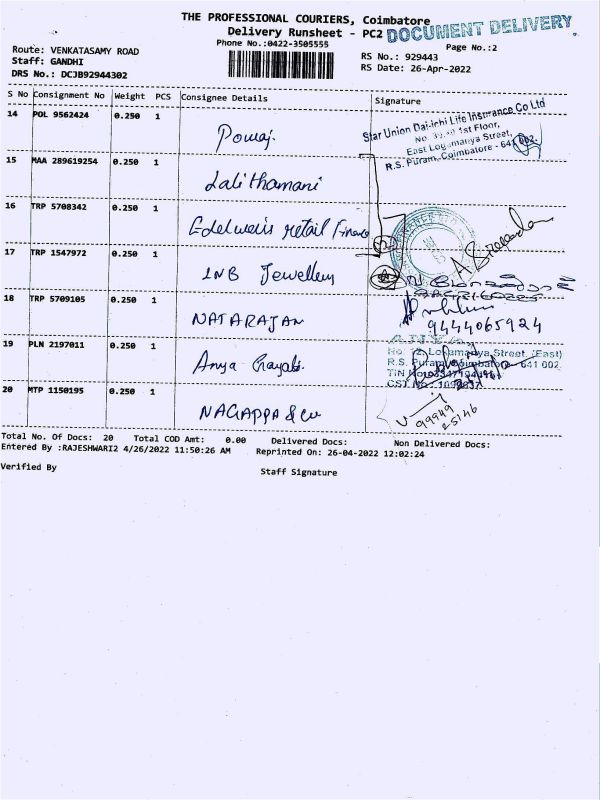 THE PROFESSIONAL COURIERS, Coimbatore
Delivery Runsheet - PC2
DOCUMENT DELIVERY
Phone No.:0422-3505555
Page No.:2
Route: VENKATASAMY ROAD
Staff: GANDHI
RS No.: 929443
DRS No.: DCJB92944302
RS Date: 26-Apr-2022
S No Consignment No Weight PCS Consignee Details Signature
14 POL 9562424 0.250 1
Star Union Dai-ichi Life Insurance Co Ltd
1st Floor,
East Logamanya Street,
R.S. Puram, Coimbatore - 641 002
15 MAA 289619254 0.250 1 Lalithamani
16 TRP 5708342 0.250 1 Edelweis retail Finance
17 TRP 1547972 0.250 1 LNB Jewellery
18 TRP 5709105 0.250 1 NATARAJAN
9444065924
19 PLN 2197011 0.250 1 Anya
ANYA
Lokamanya Street, (East)
R.S. Puram, Coimbatore - 641 002
TIN No
CST No
20 MTP 1150195 0.250 1 NAGAPPA & Co
99949
25146
Total No. Of Docs: 20 Total COD Amt: 0.00 Delivered Docs: Non Delivered Docs:
Entered By :RAJESHWARI2 4/26/2022 11:50:26 AM Reprinted On: 26-04-2022 12:02:24
Verified By Staff Signature